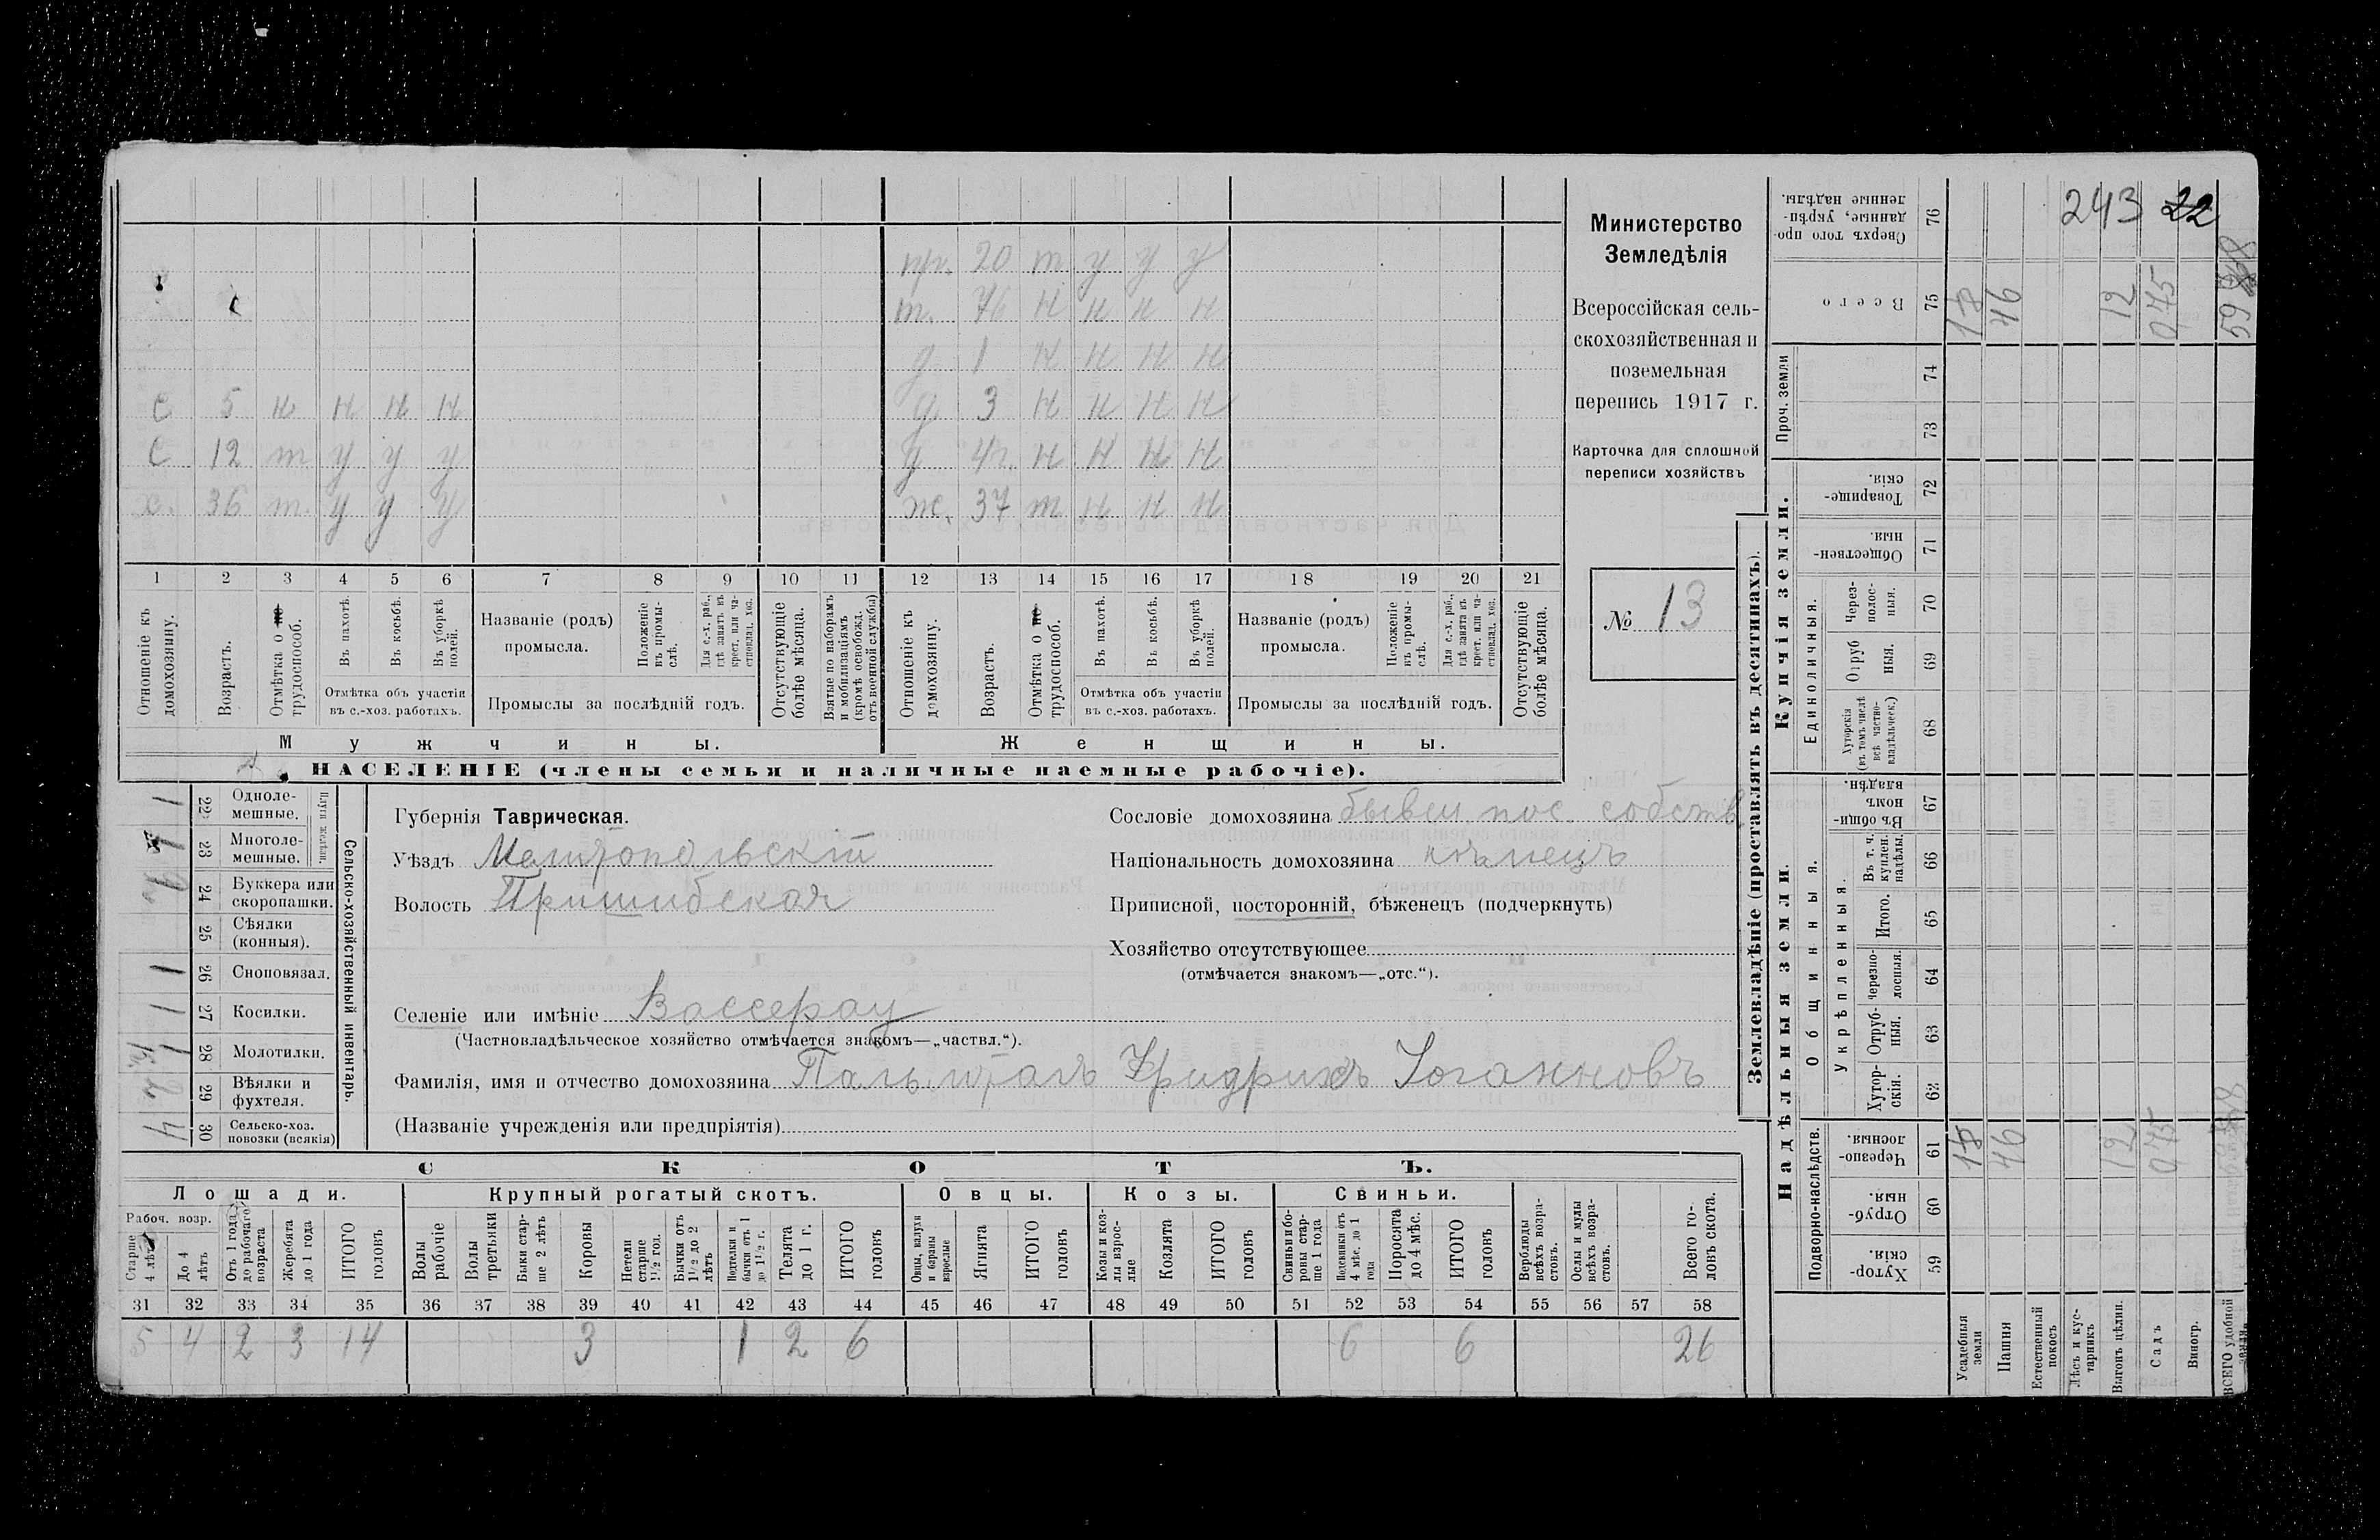 Министерство
Земледѣлія
Всероссійская сель-
скохозяйственная и
поземельная
перепись 1917 г.
Карточка для сплошной
переписи хозяйствъ
№ 13
пр. 20 т у у у
т. 76 н н н н
д. 1 н н н н
с 5 н н н н д 3 н н н н
с 12 т у у у д 4 г. н н н н
х. 36 т. у у у ж. 37 т н н н
1 2 3 4 5 6 7 8 9 10 11 12 13 14 15 16 17 18 19 20 21
Отношеніе къ домохозяину.
Возрастъ.
Отмѣтка о не трудоспособ.
Въ пахотѣ.
Въ косьбѣ.
Въ уборкѣ полей.
Отмѣтка объ участіи
въ с.-хоз. работахъ.
Названіе (родъ)
промысла.
Положеніе въ промы- слѣ.
Для с.-х. раб., гдѣ занятъ въ крест. или ча- стновлад. хоз.
Промыслы за послѣдній годъ.
Отсутствующіе болѣе мѣсяца.
Взятые по наборамъ и мобилизаціямъ (кромѣ освобожд. отъ военной службы)
Отношеніе къ домохозяину.
Возрастъ.
Отмѣтка о не трудоспособ.
Въ пахотѣ.
Въ косьбѣ.
Въ уборкѣ полей.
Отмѣтка объ участіи
въ с.-хоз. работахъ.
Названіе (родъ)
промысла.
Положеніе въ промы- слѣ.
Для с.-х. раб., гдѣ занята въ крест. или ча- стновлад. хоз.
Промыслы за послѣдній годъ.
Отсутствующіе болѣе мѣсяца.
Мужчины. Женщины.
НАСЕЛЕНІЕ (члены семьи и наличные наемные рабочіе).
Сельско-хозяйственный инвентарь.
Плуги желѣзн.
1 22 Одноле- мешные.
1 23 Многоле- мешные.
2 24 Буккера или скоропашки.
25 Сѣялки (конныя).
1 26 Сноповязал.
1 27 Косилки.
1 28 Молотилки.
2 29 Вѣялки и фухтеля.
4 30 Сельско-хоз. повозки (всякія)
Губернія Таврическая.
Уѣздъ Мелитопольскій
Волость Пришибская
Сословіе домохозяина бывш пос. собств
Національность домохозяина нѣмецъ
Приписной, посторонній, бѣженецъ (подчеркнуть)
Хозяйство отсутствующее
(отмѣчается знакомъ—„отс.“).
Селеніе или имѣніе Вассерау
(Частновладѣльческое хозяйство отмѣчается знакомъ—„частвл.“).
Фамилія, имя и отчество домохозяина Фридрихъ Іоганновъ
(Названіе учрежденія или предпріятія)
СКОТЪ.
Лошади. Крупный рогатый скотъ. Овцы. Козы. Свиньи.
Рабоч. возр.
Старше 4 лѣтъ
До 4 лѣтъ
Отъ 1 года до рабочаго возраста
Жеребята до 1 года
ИТОГО головъ
Волы рабочіе
Волы третьяки
Быки стар- ше 2 лѣтъ
Коровы
Нетели старше 1 1/2 год.
Бычки отъ 1 1/2 до 2 лѣтъ
Подтелки и бычки отъ 1 до 1 1/2 г.
Телята до 1 г.
ИТОГО головъ
Овцы, валухи и бараны взрослые
Ягнята
ИТОГО головъ
Козы и коз- лы взрос- лые
Козлята
ИТОГО головъ
Свиньи и бо- ровы стар- ше 1 года
Подсвинки отъ 4 мѣс. до 1 года
Поросята до 4 мѣс.
ИТОГО головъ
Верблюды всѣхъ возра- стовъ.
Ослы и мулы всѣхъ возра- стовъ.
Всего го- ловъ скота.
31 32 33 34 35 36 37 38 39 40 41 42 43 44 45 46 47 48 49 50 51 52 53 54 55 56 57 58
5 4 2 3 14 3 1 2 6 6 6 26
Землевладѣніе (проставлять въ десятинахъ).
Надѣльныя земли. Купчія земли.
Проч. земли
Подворно-наслѣдств.
Общинныя.
Укрѣпленныя.
Единоличныя.
Сверхъ того про- данные, укрѣп- ленные надѣлы. 76
Всего 75
74
73
Товарище- скія. 72
Обществен- ныя. 71
Через- полос- ныя. 70
Отруб ныя. 69
Хуторскія (въ томъ числѣ всѣ частно- владѣльческ.) 68
Въ общи- номъ владѣн. 67
Въ т. ч. куплен. надѣлы 66
Итого. 65
Черезпо- лосныя. 64
Отруб- ныя. 63
Хутор- скія. 62
Черезпо- лосныя. 61
Отруб- ныя. 60
Хутор- скія. 59
Усадебныя земли
Пашня 46 46
Естественный покосъ
Лѣсъ и кус- тарникъ
Выгонъ цѣлин. 12 12
Садъ 0,45 0,45
Виногр.
ВСЕГО удобной земли
243 22